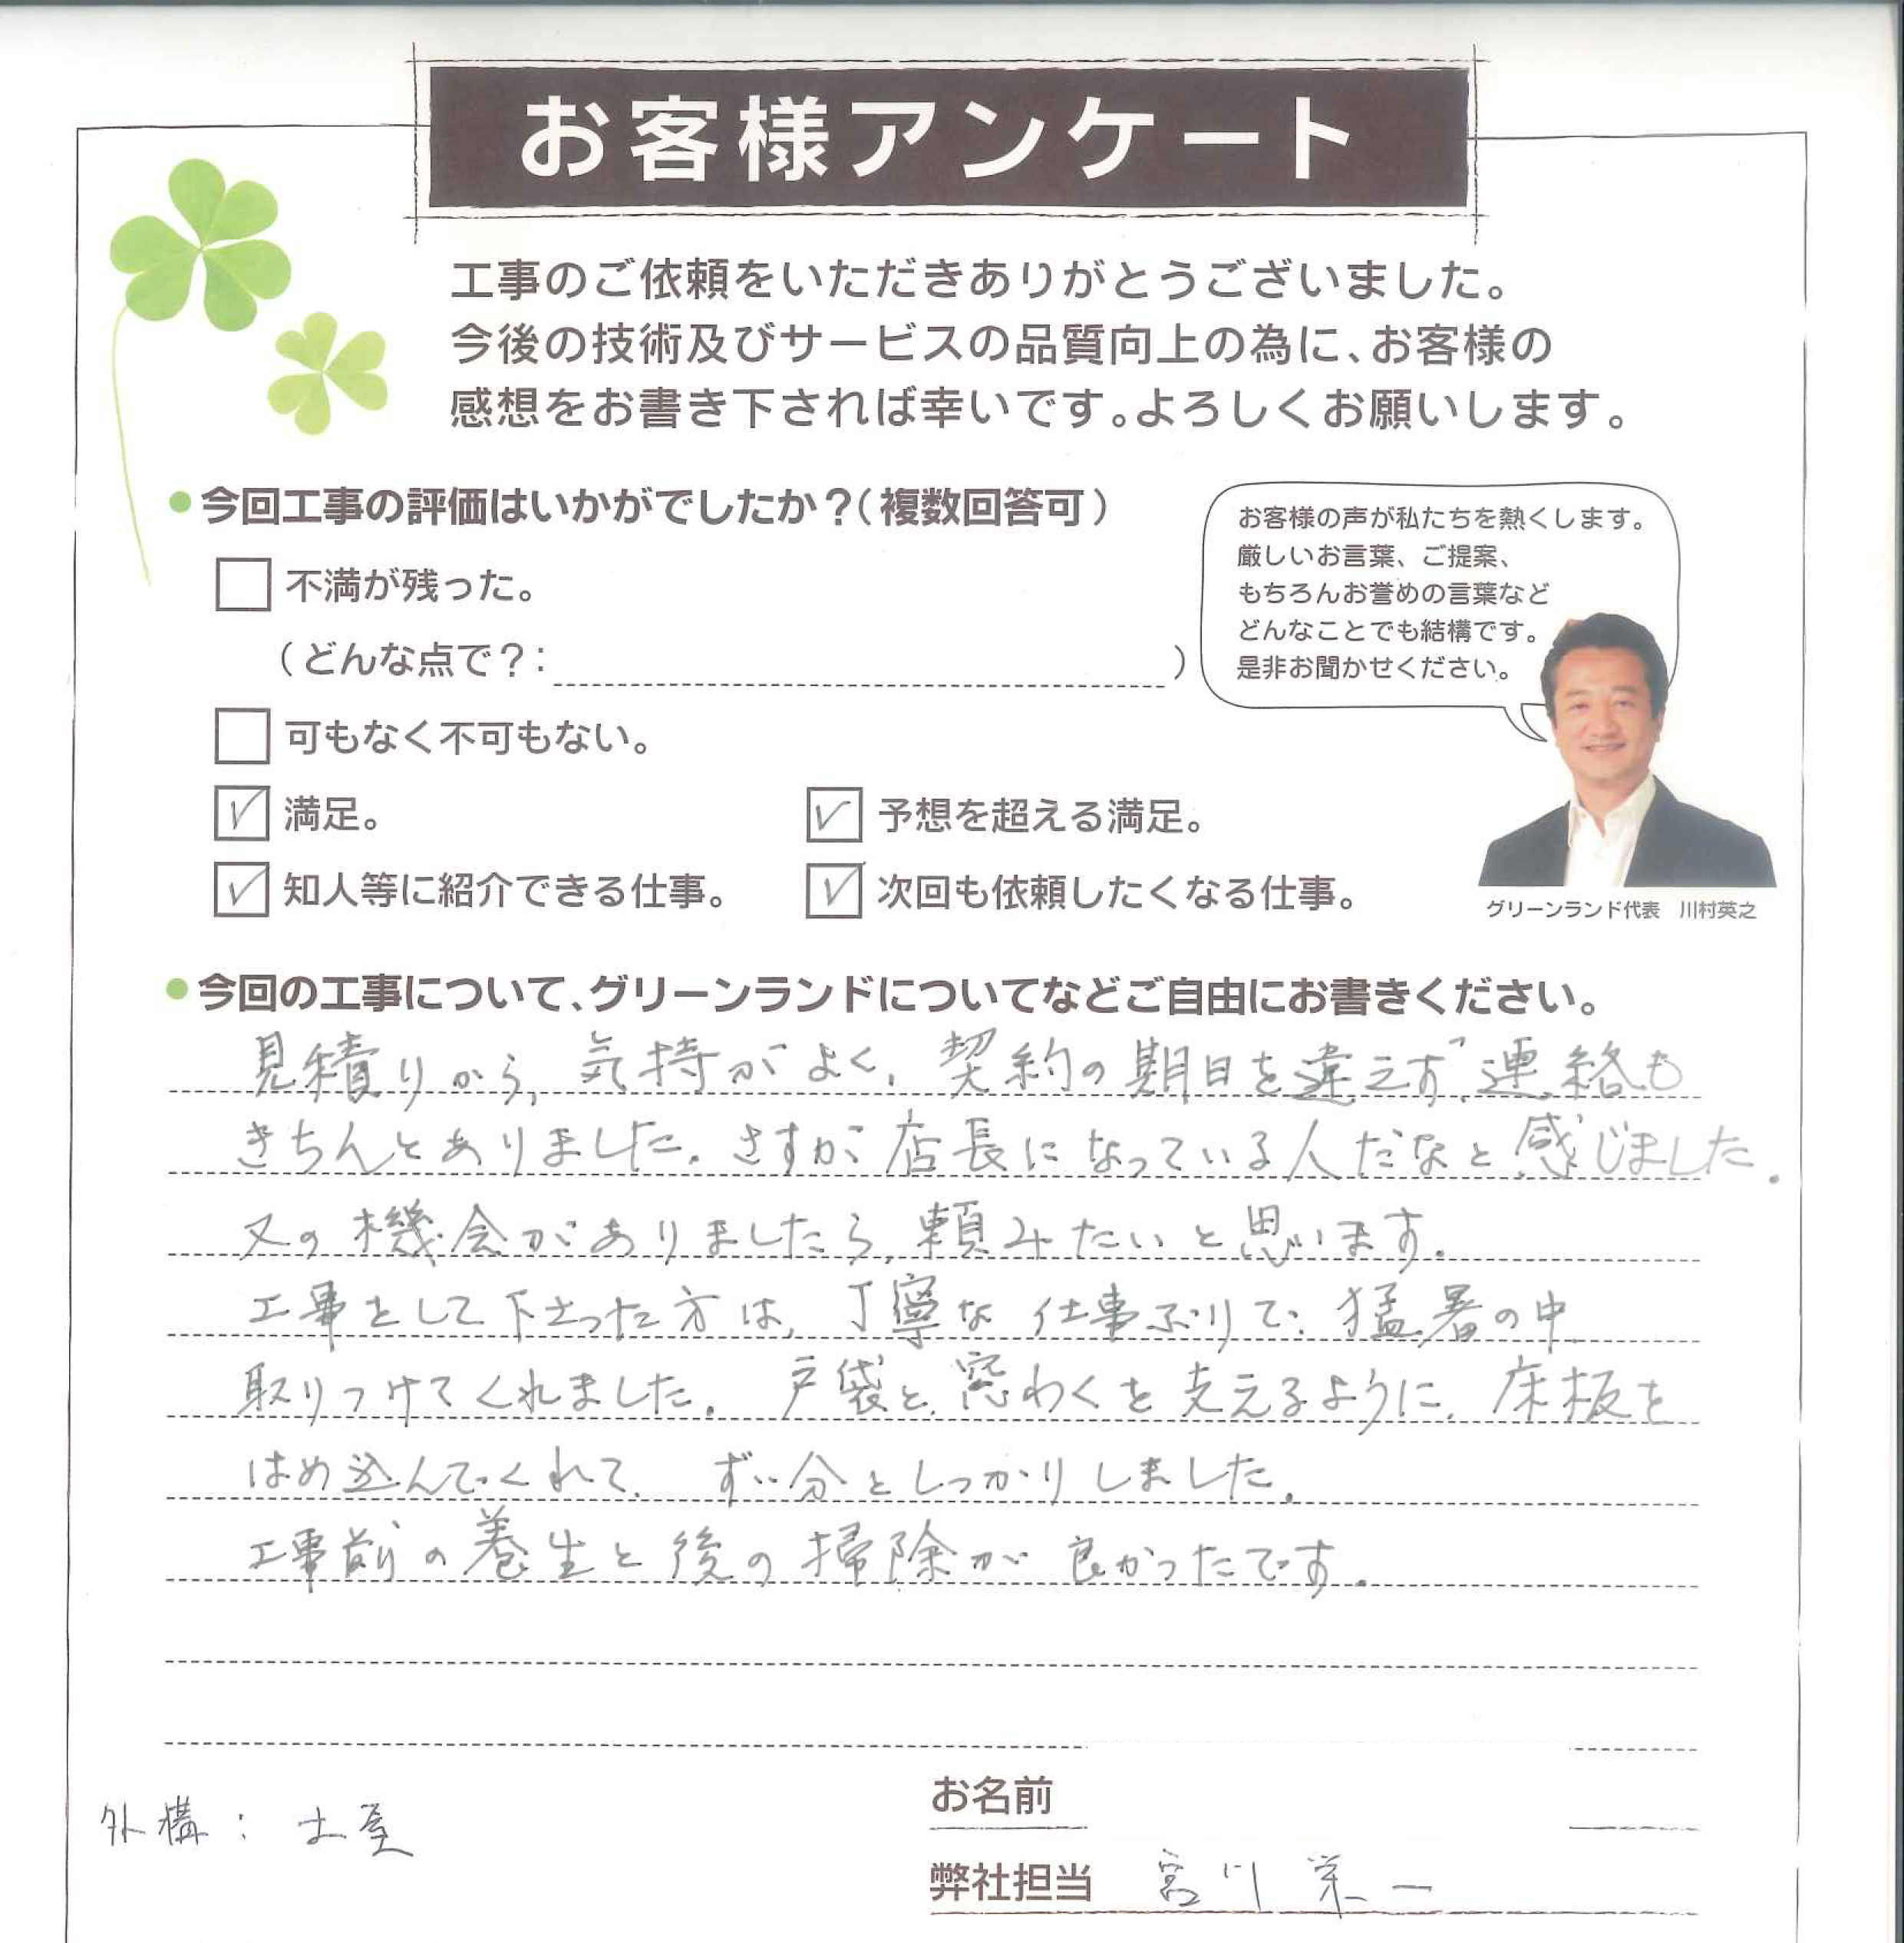 お客様アンケート
工事のご依頼をいただきありがとうございました。
今後の技術及びサービスの品質向上の為に、お客様の
感想をお書き下されば幸いです。よろしくお願いします。
今回工事の評価はいかがでしたか？（複数回答可）
不満が残った。
（どんな点で？：　）
可もなく不可もない。
満足。
予想を超える満足。
知人等に紹介できる仕事。
次回も依頼したくなる仕事。
お客様の声が私たちを熱くします。
厳しいお言葉、ご提案、
もちろんお誉めの言葉など
どんなことでも結構です。
是非お聞かせください。
グリーンランド代表　川村英之
今回の工事について、グリーンランドについてなどご自由にお書きください。
見積りから、気持がよく、契約の期日を違えず、連絡も
きちんとありました。さすが店長になっている人だなと感じました。
又の機会がありましたら、頼みたいと思います。
工事をして下さった方は、丁寧な仕事ぶりで、猛暑の中、
取りつけてくれました。戸袋と、窓わくを支えるように、床板を
はめ込んでくれて、ずい分としっかりしました。
工事前の養生と後の掃除が良かったです。
お名前
外構：土屋
弊社担当　宮川　栄一